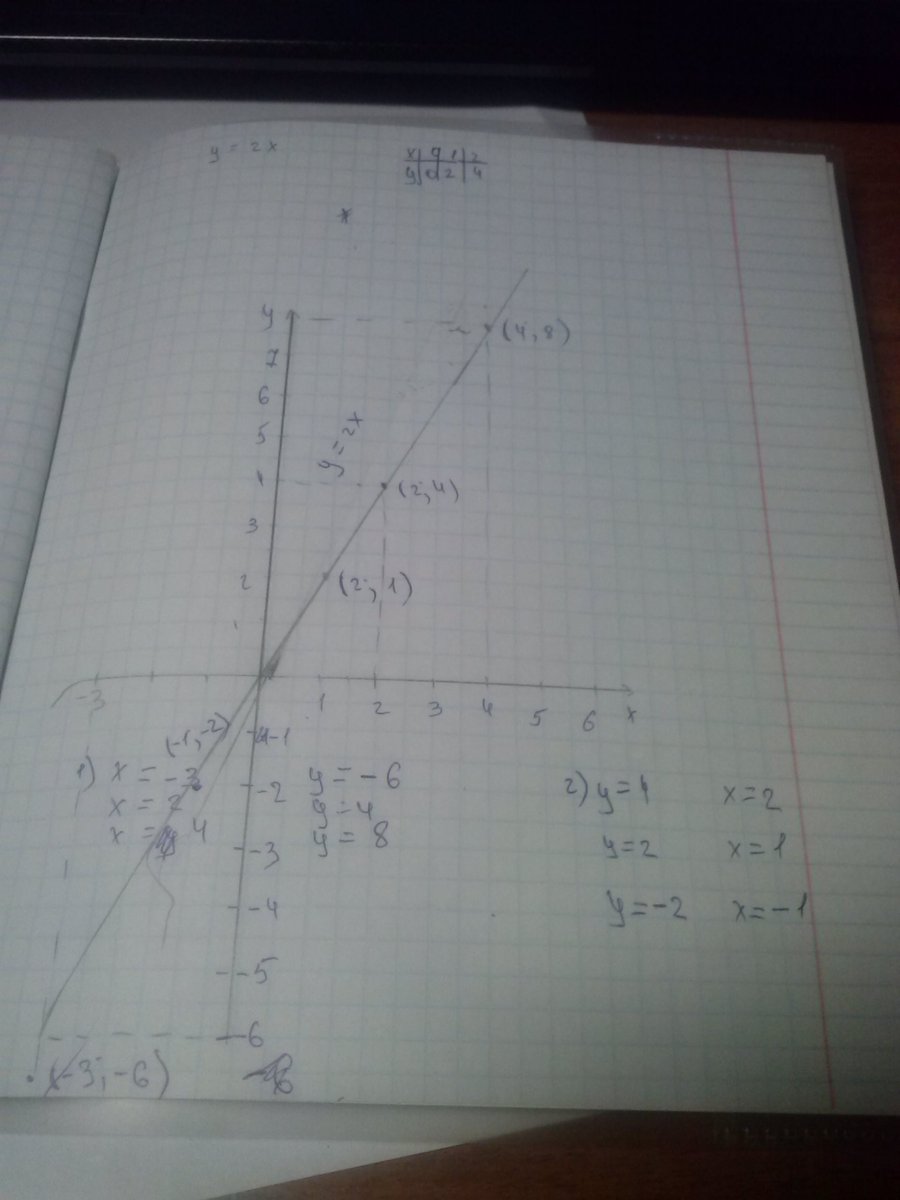 y = 2x
x 0 1 2
y 0 2 4
y
7
(4, 8)
6
5
y = 2x
4
(2; 4)
3
2
(2; 1)
-3
1 2 3 4 5 6 x
(-1, -2)
-1
1) x = -3 y = -6
x = 2 y = 4
x = 4 y = 8
2) y = 4 x = 2
y = 2 x = 1
y = -2 x = -1
-2
-3
-4
-5
-6
(-3; -6)